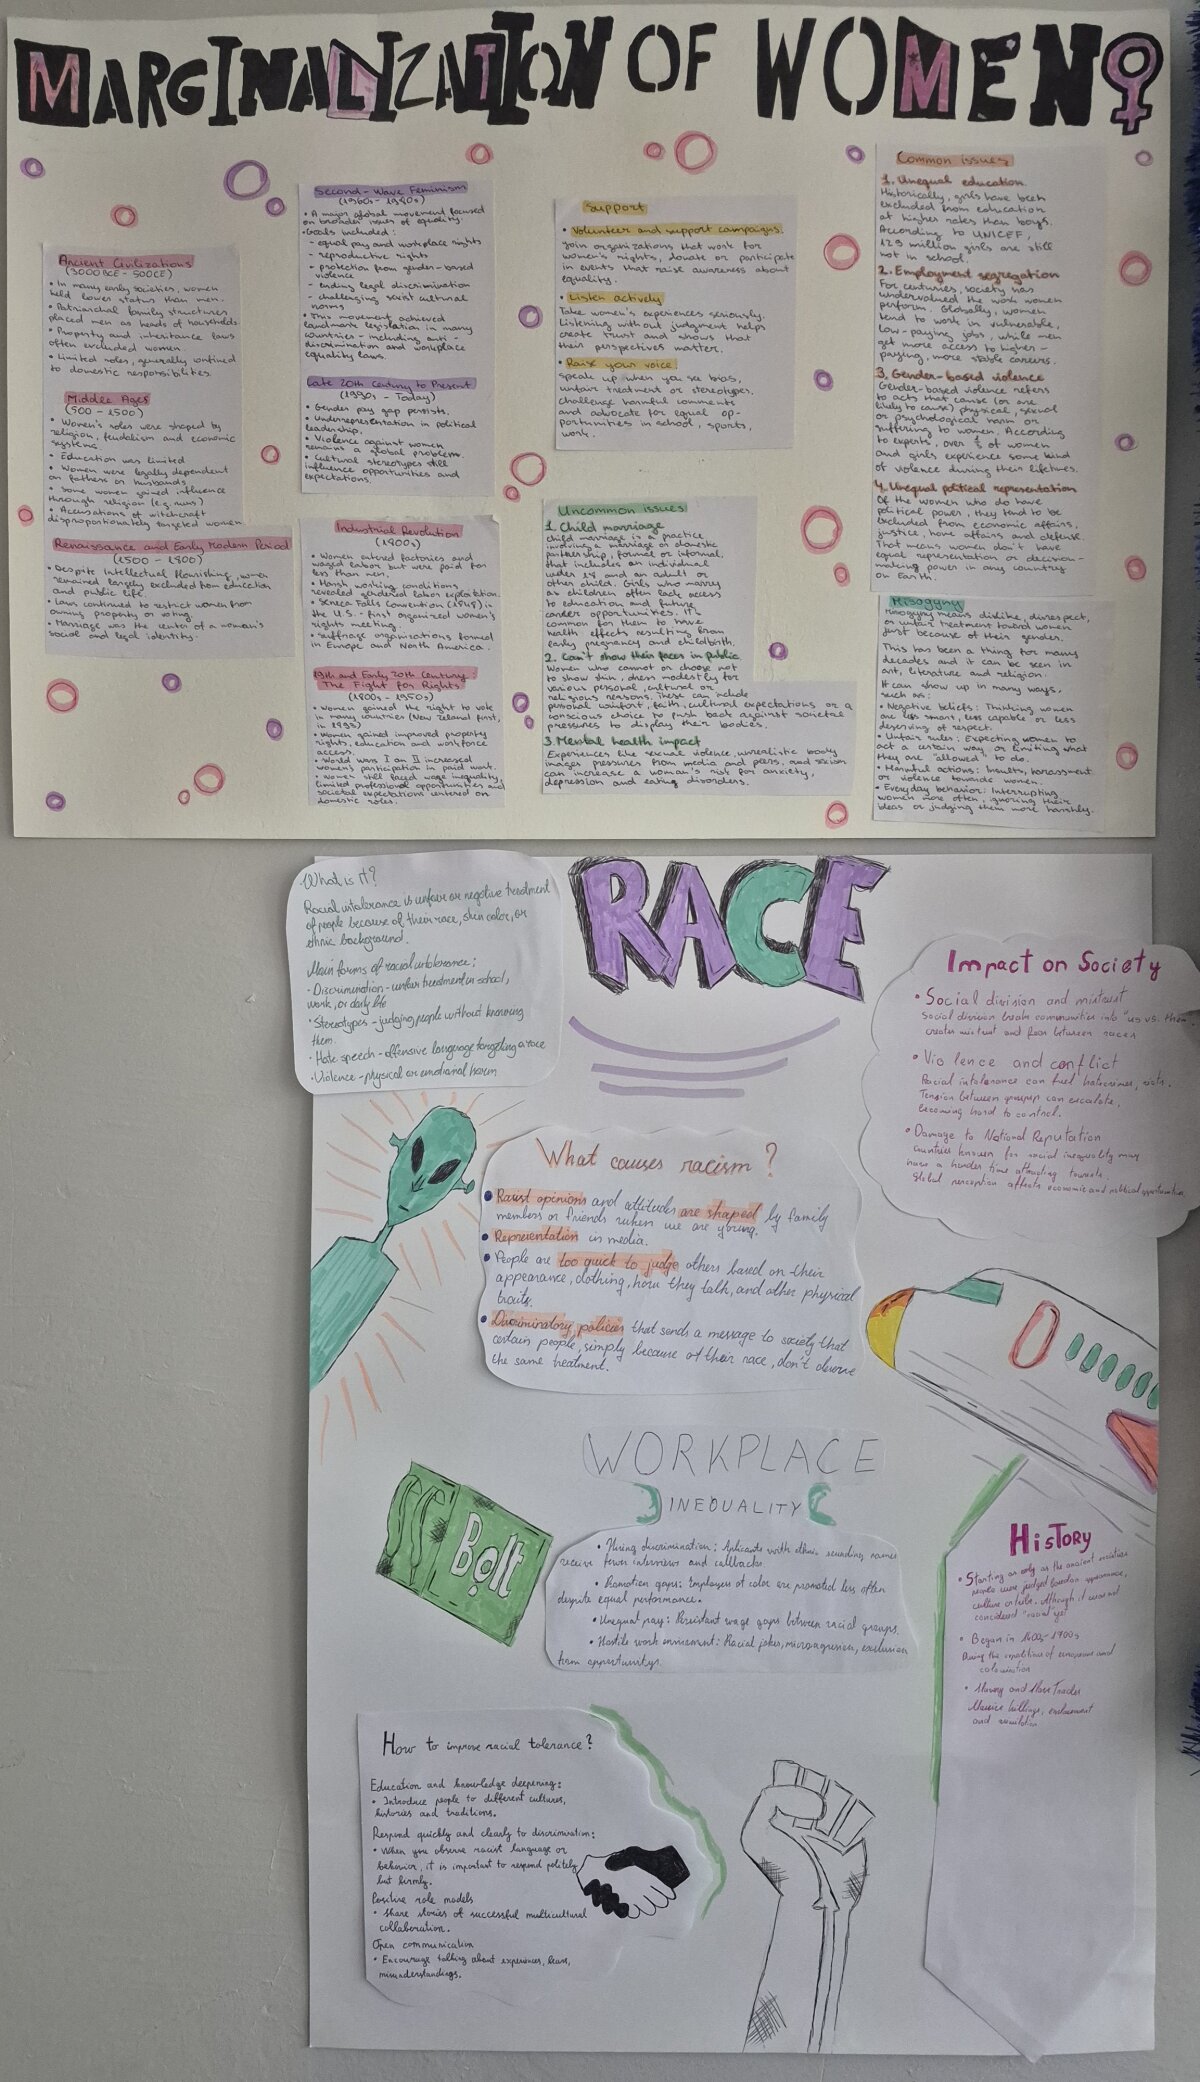 MARGINALIZATION OF WOMEN
Ancient Civilizations
(3000 BCE - 500 CE)
• In many early societies, women
held lower status than men.
• Patriarchal family structures
placed men as heads of households.
• Property and inheritance laws
often excluded women
• Limited roles, generally confined
to domestic responsibilities.
Middle Ages
(500 - 1500)
• Women's roles were shaped by
religion, feudalism and economic
systems
• Education was limited
• Women were legally dependent
on fathers or husbands
• Some women gained influence
through religion (e.g. nuns)
• Accusations of witchcraft
disproportionately targeted women
Renaissance and Early Modern Period
(1500 - 1800)
• Despite Intellectual flourishing, women
remained largely excluded from education
and public life.
• Laws continued to restrict women from
owning property or voting.
• Marriage was the center of a woman's
social and legal identity.
Second-Wave Feminism
(1960s - 1980s)
• A major global movement focused
on broader issues of equality.
• Goals included:
- equal pay and workplace rights
- reproductive rights
- protection from gender-based
violence
- ending legal discrimination
- challenging sexist cultural
norms
• This movement achieved
landmark legislation in many
countries - including anti-
discrimination and workplace
equality laws.
Late 20th Century to Present
(1990s - Today)
• Gender pay gap persists.
• Underrepresentation in political
leadership.
• Violence against women
remains a global problem.
• Cultural stereotypes still
influence opportunities and
expectations.
Industrial Revolution
(1800s)
• Women entered factories and
waged labor but were paid far
less than men.
• Harsh working conditions
revealed gendered labor exploitation.
• Seneca Falls Convention (1848) in
the U.S. - first organized women's
rights meeting.
• Suffrage organisations formed
in Europe and North America.
19th and Early 20th Century:
The Fight for Rights
(1800s - 1950s)
• Women gained the right to vote
in many countries (New Zeland first,
in 1893)
• Women gained improved property
rights, education and workforce
access.
• World wars I an II increased
women's participation in paid work.
• Women still faced wage inequality,
limited professional opportunities and
societal expectations centered on
domestic roles.
Support
• Volunteer and support campaigns.
Join organizations that work for
women's rights, donate or participate
in events that raise awareness about
equality.
• Listen actively
Take women's experiences seriously.
Listening without judgment helps
create trust and shows that
their perspectives matter.
• Raise your voice
Speak up when you see bias,
unfair treatment or stereotypes.
Challenge harmful comments
and advocate for equal op-
portunities in school, sports,
work.
Uncommon issues
1. Child marriage
Child marriage is a practice
involving a marriage or domestic
partnership, formal or informal,
that includes an individual
under 18 and an adult or
other child. Girls who marry
as children often lack access
to education and future
career opportunities. It's
common for them to have
health effects resulting from
early pregnancy and childbirth.
2. Can't show their faces in public
Women who cannot or choose not
to show skin, dress modestly for
various personal, cultural or
religious reasons. These can include
personal comfort, faith, cultural expectations or a
conscious choice to push back against societal
pressures to display their bodies.
3. Mental health impact
Experiences like sexual violence, unrealistic body
images pressures from media and peers, and sexism
can increase a woman's risk for anxiety,
depression and eating disorders.
Common issues
1. Unequal education
Historically, girls have been
excluded from education
at higher rates than boys.
According to UNICEF,
129 million girls are still
not in school.
2. Employment segregation
For centuries, society has
undervalued the work women
perform. Globally, women
tend to work in vulnerable,
low-paying jobs, while men
get more access to higher-
paying, more stable careers.
3. Gender-based violence
Gender-based violence refers
to acts that cause (or are
likely to cause) physical, sexual
or psychological harm or
suffering to women. According
to experts, over of women
and girls experience some kind
of violence during their lifetimes.
4. Unequal political representation
Of the women who do have
political power, they tend to be
excluded from economic affairs,
justice, home affairs and defense.
That means women don't have
equal representation or decision-
making power in any country
on Earth.
Misogyny
Misogyny means dislike, disrespect,
or unfair treatment toward women
just because of their gender.
This has been a thing for many
decades and it can be seen in
art, literature and religion.
It can show up in many ways,
such as:
• Negative beliefs: Thinking women
are less smart, less capable or less
deserving of respect.
• Unfair rules: Expecting women to
act a certain way or limiting what
they are "allowed" to do.
• Harmful actions: Insults, harassment
or violence towards women.
• Everyday behavior: Interrupting
women more often, ignoring their
ideas or judging them more harshly.
RACE
What is it?
Racial intolerance is unfair or negative treatment
of people because of their race, skin color, or
ethnic background.
Main forms of racial intolerance:
• Discrimination - unfair treatment in school,
work, or daily life
• Stereotypes - judging people without knowing
them.
• Hate speech - offensive language targeting a race
• Violence - physical or emotional harm
Impact on Society
• Social division and mistrust
Social division breaks communities into "us vs. them",
creates mistrust and fear between races
• Violence and conflict
Racial intolerance can fuel hatecrimes, riots.
Tension between groups can escalate,
becoming hard to control.
• Damage to National Reputation
Countries known for social inequality may
have a harder time attracting tourists.
Global perception affects economic and political opportunities
What causes racism?
• Racist opinions and attitudes are shaped by family
members or friends when we are young.
• Representation in media.
• People are too quick to judge others based on their
appearance, clothing, how they talk, and other physical
traits.
• Discriminatory policies that sends a message to society that
certain people, simply because of their race, don't deserve
the same treatment.
WORKPLACE
INEQUALITY
• Hiring discrimination: Aplicants with ethnic sounding names
receive fewer interviews and callbacks.
• Promotion gaps: Employees of color are promoted less often
despite equal performance.
• Unequal pay: Persistant wage gaps between racial groups.
• Hostile work enviroment: Racial jokes, microagression, exclusion
from opportunitys.
Bolt
HISTORY
• Starting as early as the ancient societies
people were judged based on appearance,
culture or tribe. Although it was not
considered "racial" yet
• Began in 1400s-1700s
During the expeditions of europeans and
colonization
• Slavery and Slave Trades
Massive killings, enslavement
and
How to improve racial tolerance?
Education and knowledge deepening:
• Introduce people to different cultures,
histories and traditions.
Respond quickly and clearly to discrimination:
• When you observe racist language or
behavior, it is important to respond politely
but firmly.
Positive role models
• Share stories of successful multicultural
collaboration.
Open communication
• Encourage talking about experiences, fears,
misunderstandings.